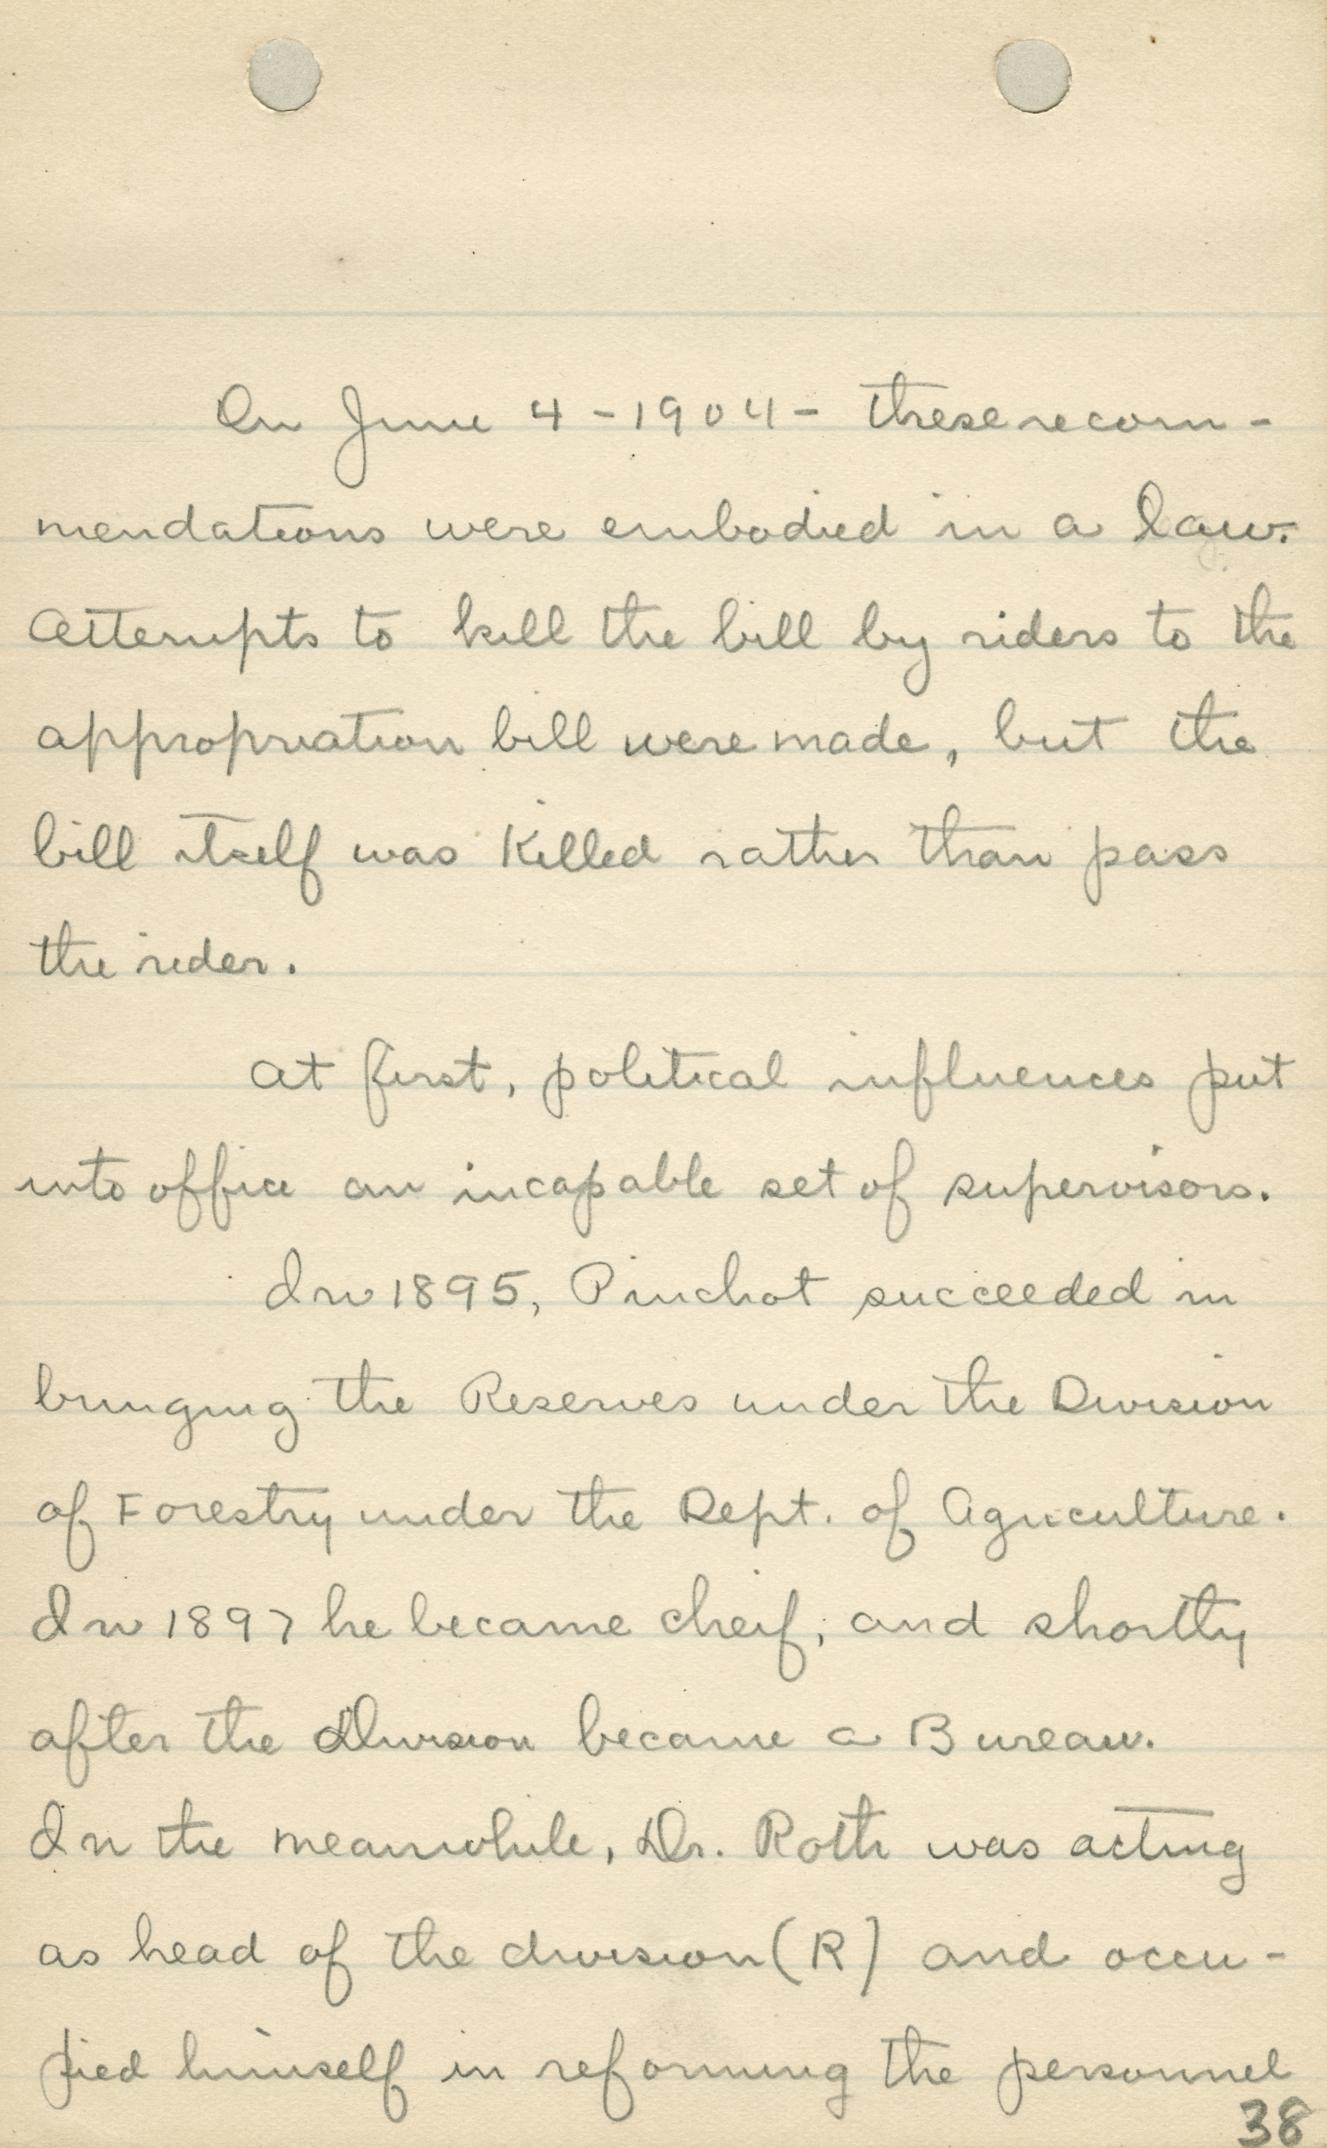 On June 4 - 1904 - these recom-
mendations were embodied in a law.
Attempts to kill the bill by riders to the
appropriation bill were made, but the
bill itself was killed rather than pass
the rider.
At first, political influences put
into office an incapable set of supervisors.
In 1895, Pinchot succeeded in
bringing the Reserves under the Division
of Forestry under the Dept. of Agriculture.
In 1897 he became cheif, and shortly
after the Division became a Bureau.
In the meanwhile, Dr. Roth was acting
as head of the division (R) and occu-
pied himself in reforming the personnel
38